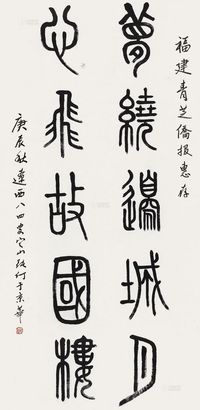 福建青芝僑報惠存
夢繞邊城月
心飛故國樓
庚辰秋 西八四叟 山 于京華